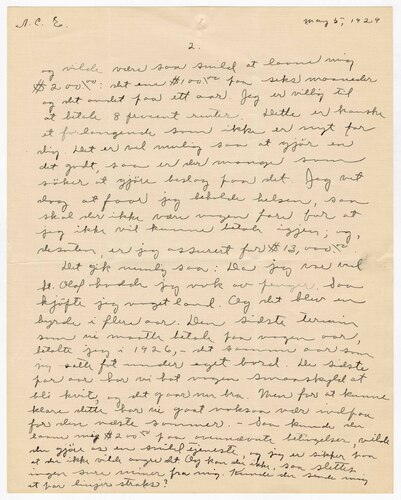 N. C. E.
May 5, 1929
2.
og vilde være saa snild at laane mig
$200.00: det ene $100.00 paa seks maaneder
og det andet paa ett aar. Jeg er villig til
at betale 8 percent renter. Dette er kanske
et forlangende som ikke er nyt for
dig. Det er vel mulig saa at gjör en
det godt, saa er der mange som
söker at gjöre beslag paa det. Jeg vet
dog at faar jeg beholde helsen, saa
skal der ikke være nogen fare for at
jeg ikke vil kunne betale igjen; og,
desuten, er jeg assurert for $13,000.00
Det gik nemlig saa: Da jeg var ved
St. Olaf hadde jeg nok av penger. Saa
kjöpte jeg noget land. Og det blev en
byrde i flere aar. Den sidste termin
som vi maatte betale paa nogen aar,
betalte jeg i 1926, - det samme aar som
vi satte fot under eget bord. De sidste
par aar har vi hat nogen smaaskyld at
bli kvit, og det gaar nu bra. Men for at kunne
klare dette har vi gaat noksaa nær indpaa
for den næste sommer. - Saa kunde du
laane mig $200.00 paa ovennævnte betingelser, vilde
du gjöre os en snild tjeneste, og jeg er sikker paa
at du ikke vilde angre det. Og kan du ikke, saa slettes
ingen sure miner fra mig. Kunde du sende mig
et par linjer straks?